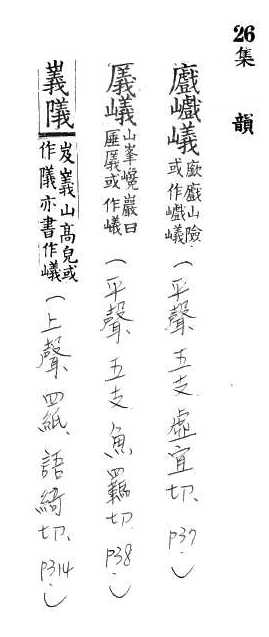 26 集韻
巇嶬 廞山險或作巇嶬(平聲、五支、虛宜切、P37、)
㕒嶬 山峯巉巖曰厜㕒或作嶬(平聲、五支、魚羈切、P38、)
㠖 岌㠖山高皃或作亦書作嶬(上聲、四紙、語綺切、P314、)